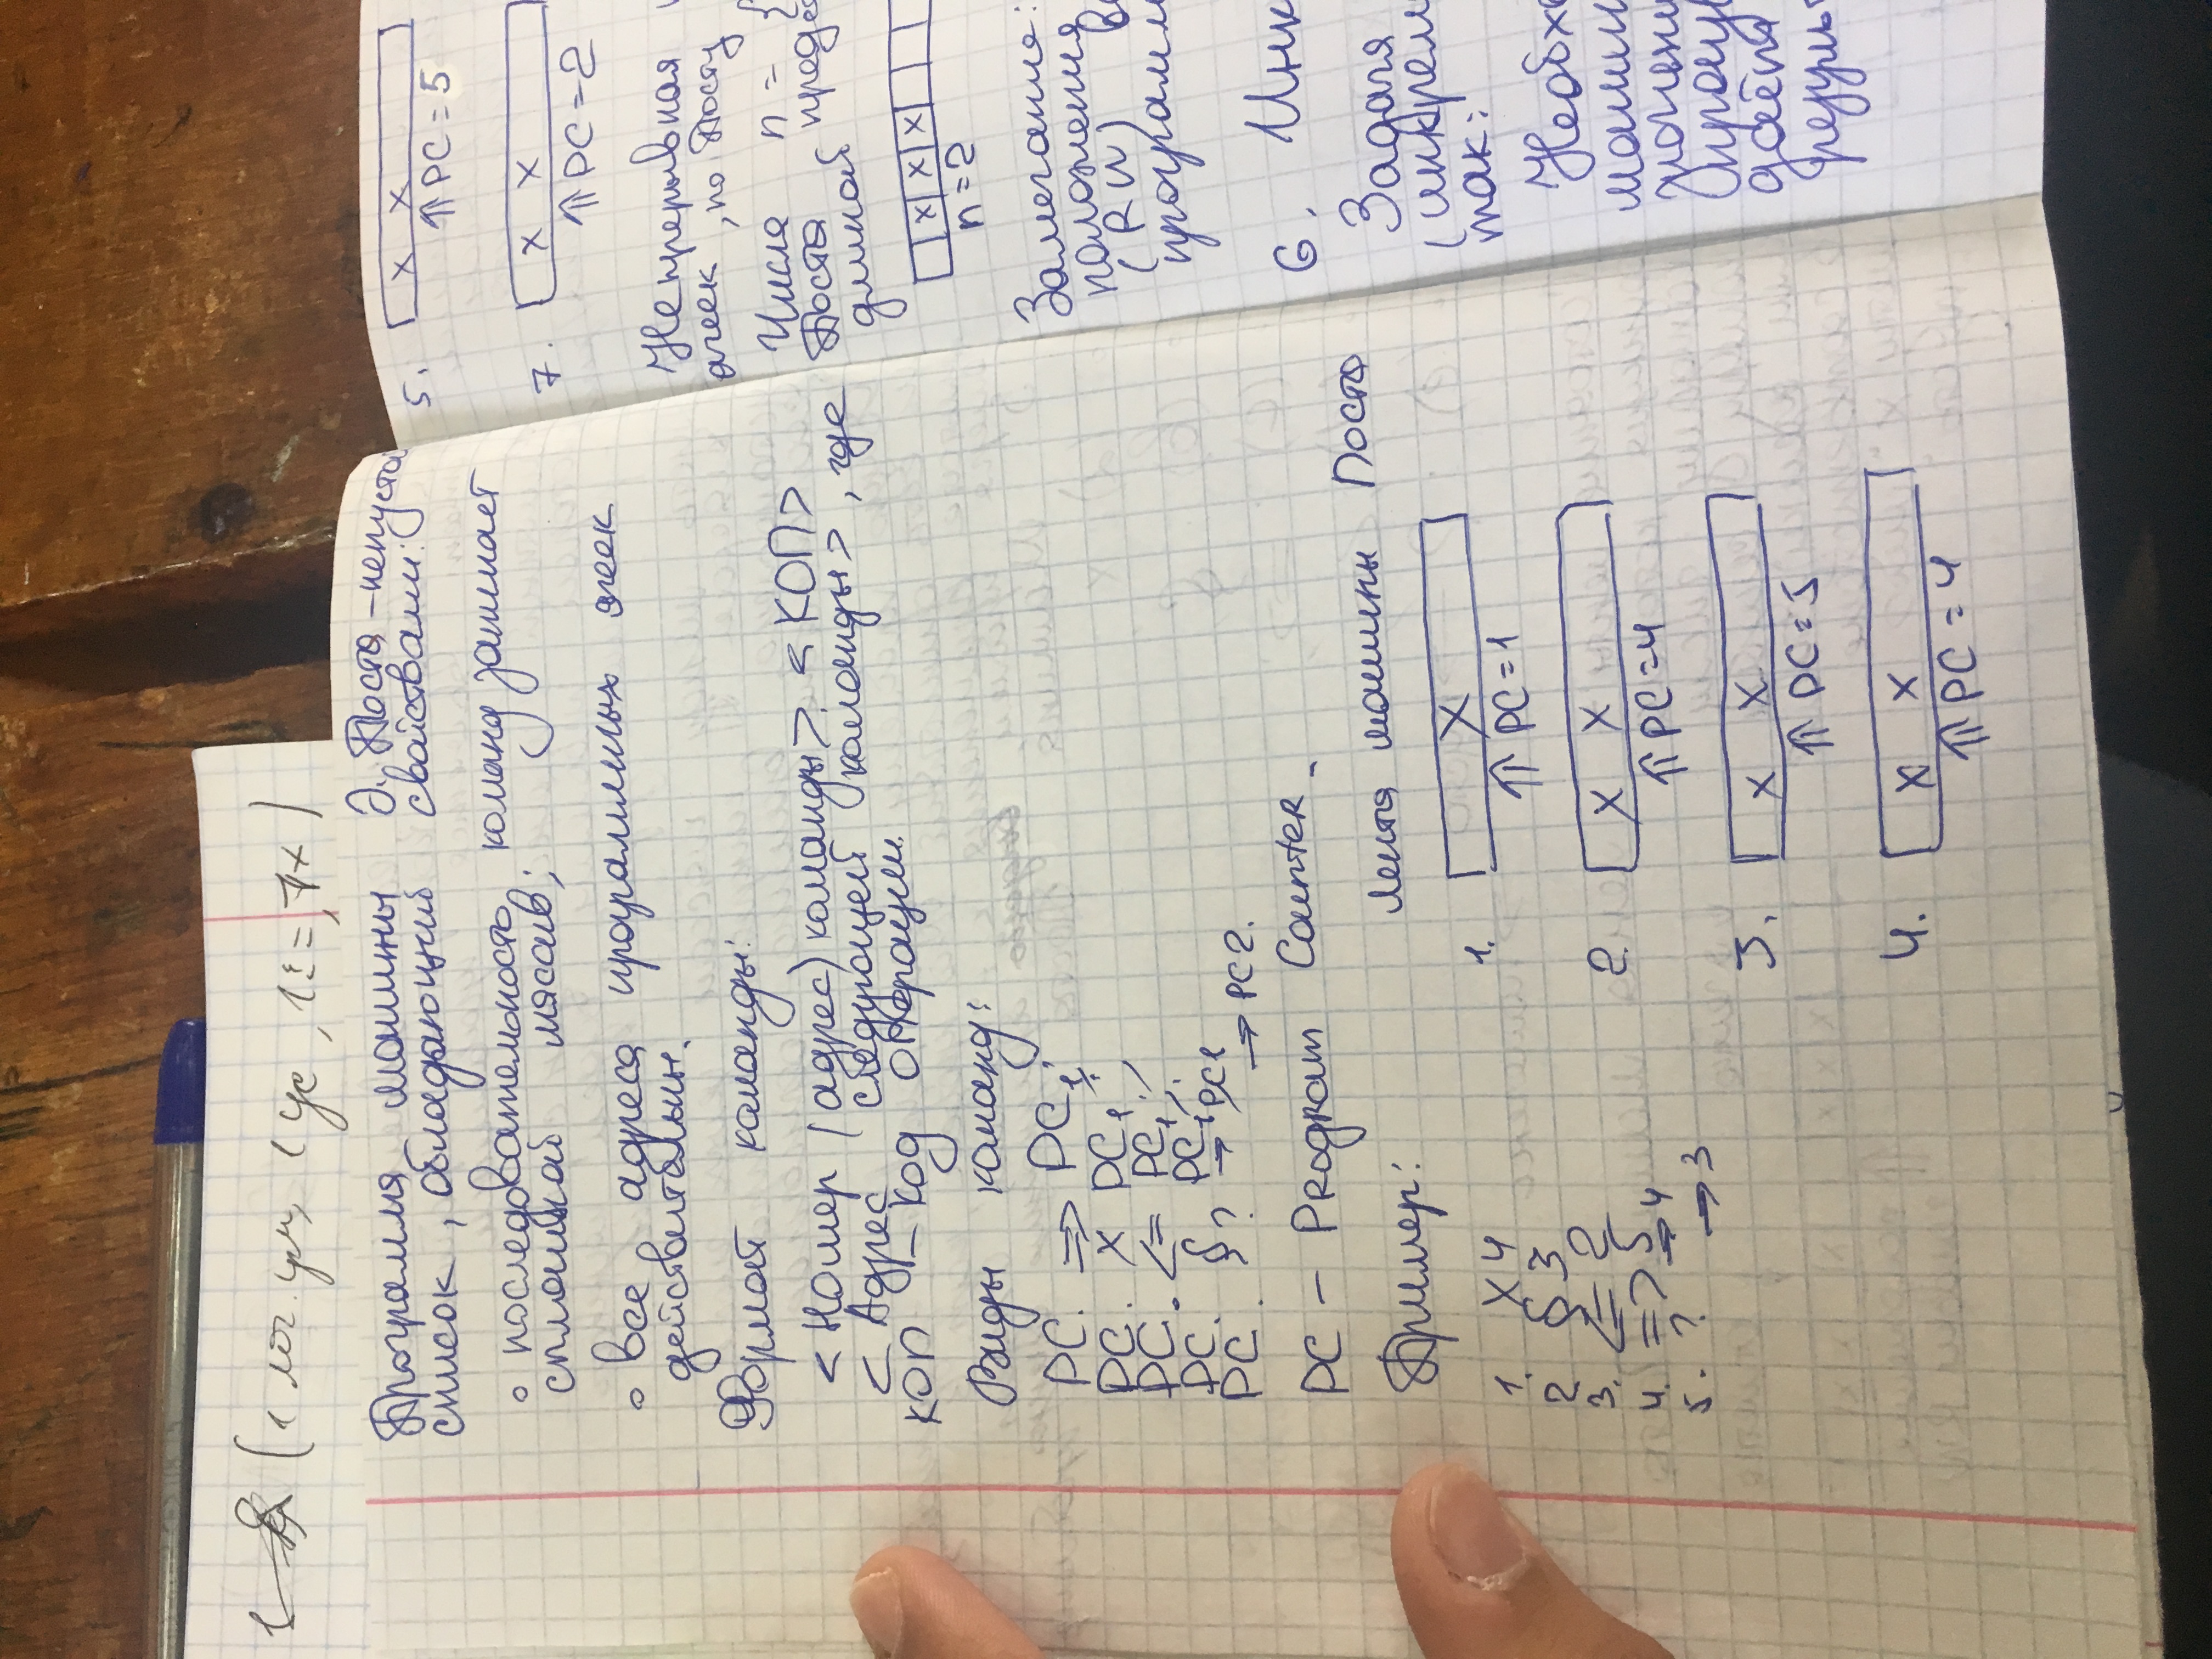 (1 лог. ум, 1 ус, 1 := , 7x)
Программа машины Э. Поста – непустой
список, обладающий свойствами:
∘ последовательность команд занимает
сплошной массив;
∘ все адреса программных ячеек
действительны.
Формат команды:
<Номер (адрес) команды>. <КОП>
<Адрес следующей команды>, где
КОП – код операции.
Виды команд:
PC. => PC1;
PC. X PC1;
PC. <= PC1;
PC. PC1;
PC. ? → PC1
→ PC2.
PC – Program Counter.
Пример:
1. X 4
2 3
3. <= 2
4. => 5
5. ? → 4
→ 3
Лента машины Поста
1. X
⇑ PC=1
2. X X
⇑ PC=4
3. X X
⇑ PC=5
4. X X
⇑ PC=4
5. X X
⇑ PC=5
7. X X
⇑ PC=2
Непрерывная
ячеек, по Посту
Числа n = {
Поста
длиной
X X X
n=2
Замечание:
положения
(RW)
6. Инк
Задача
так: